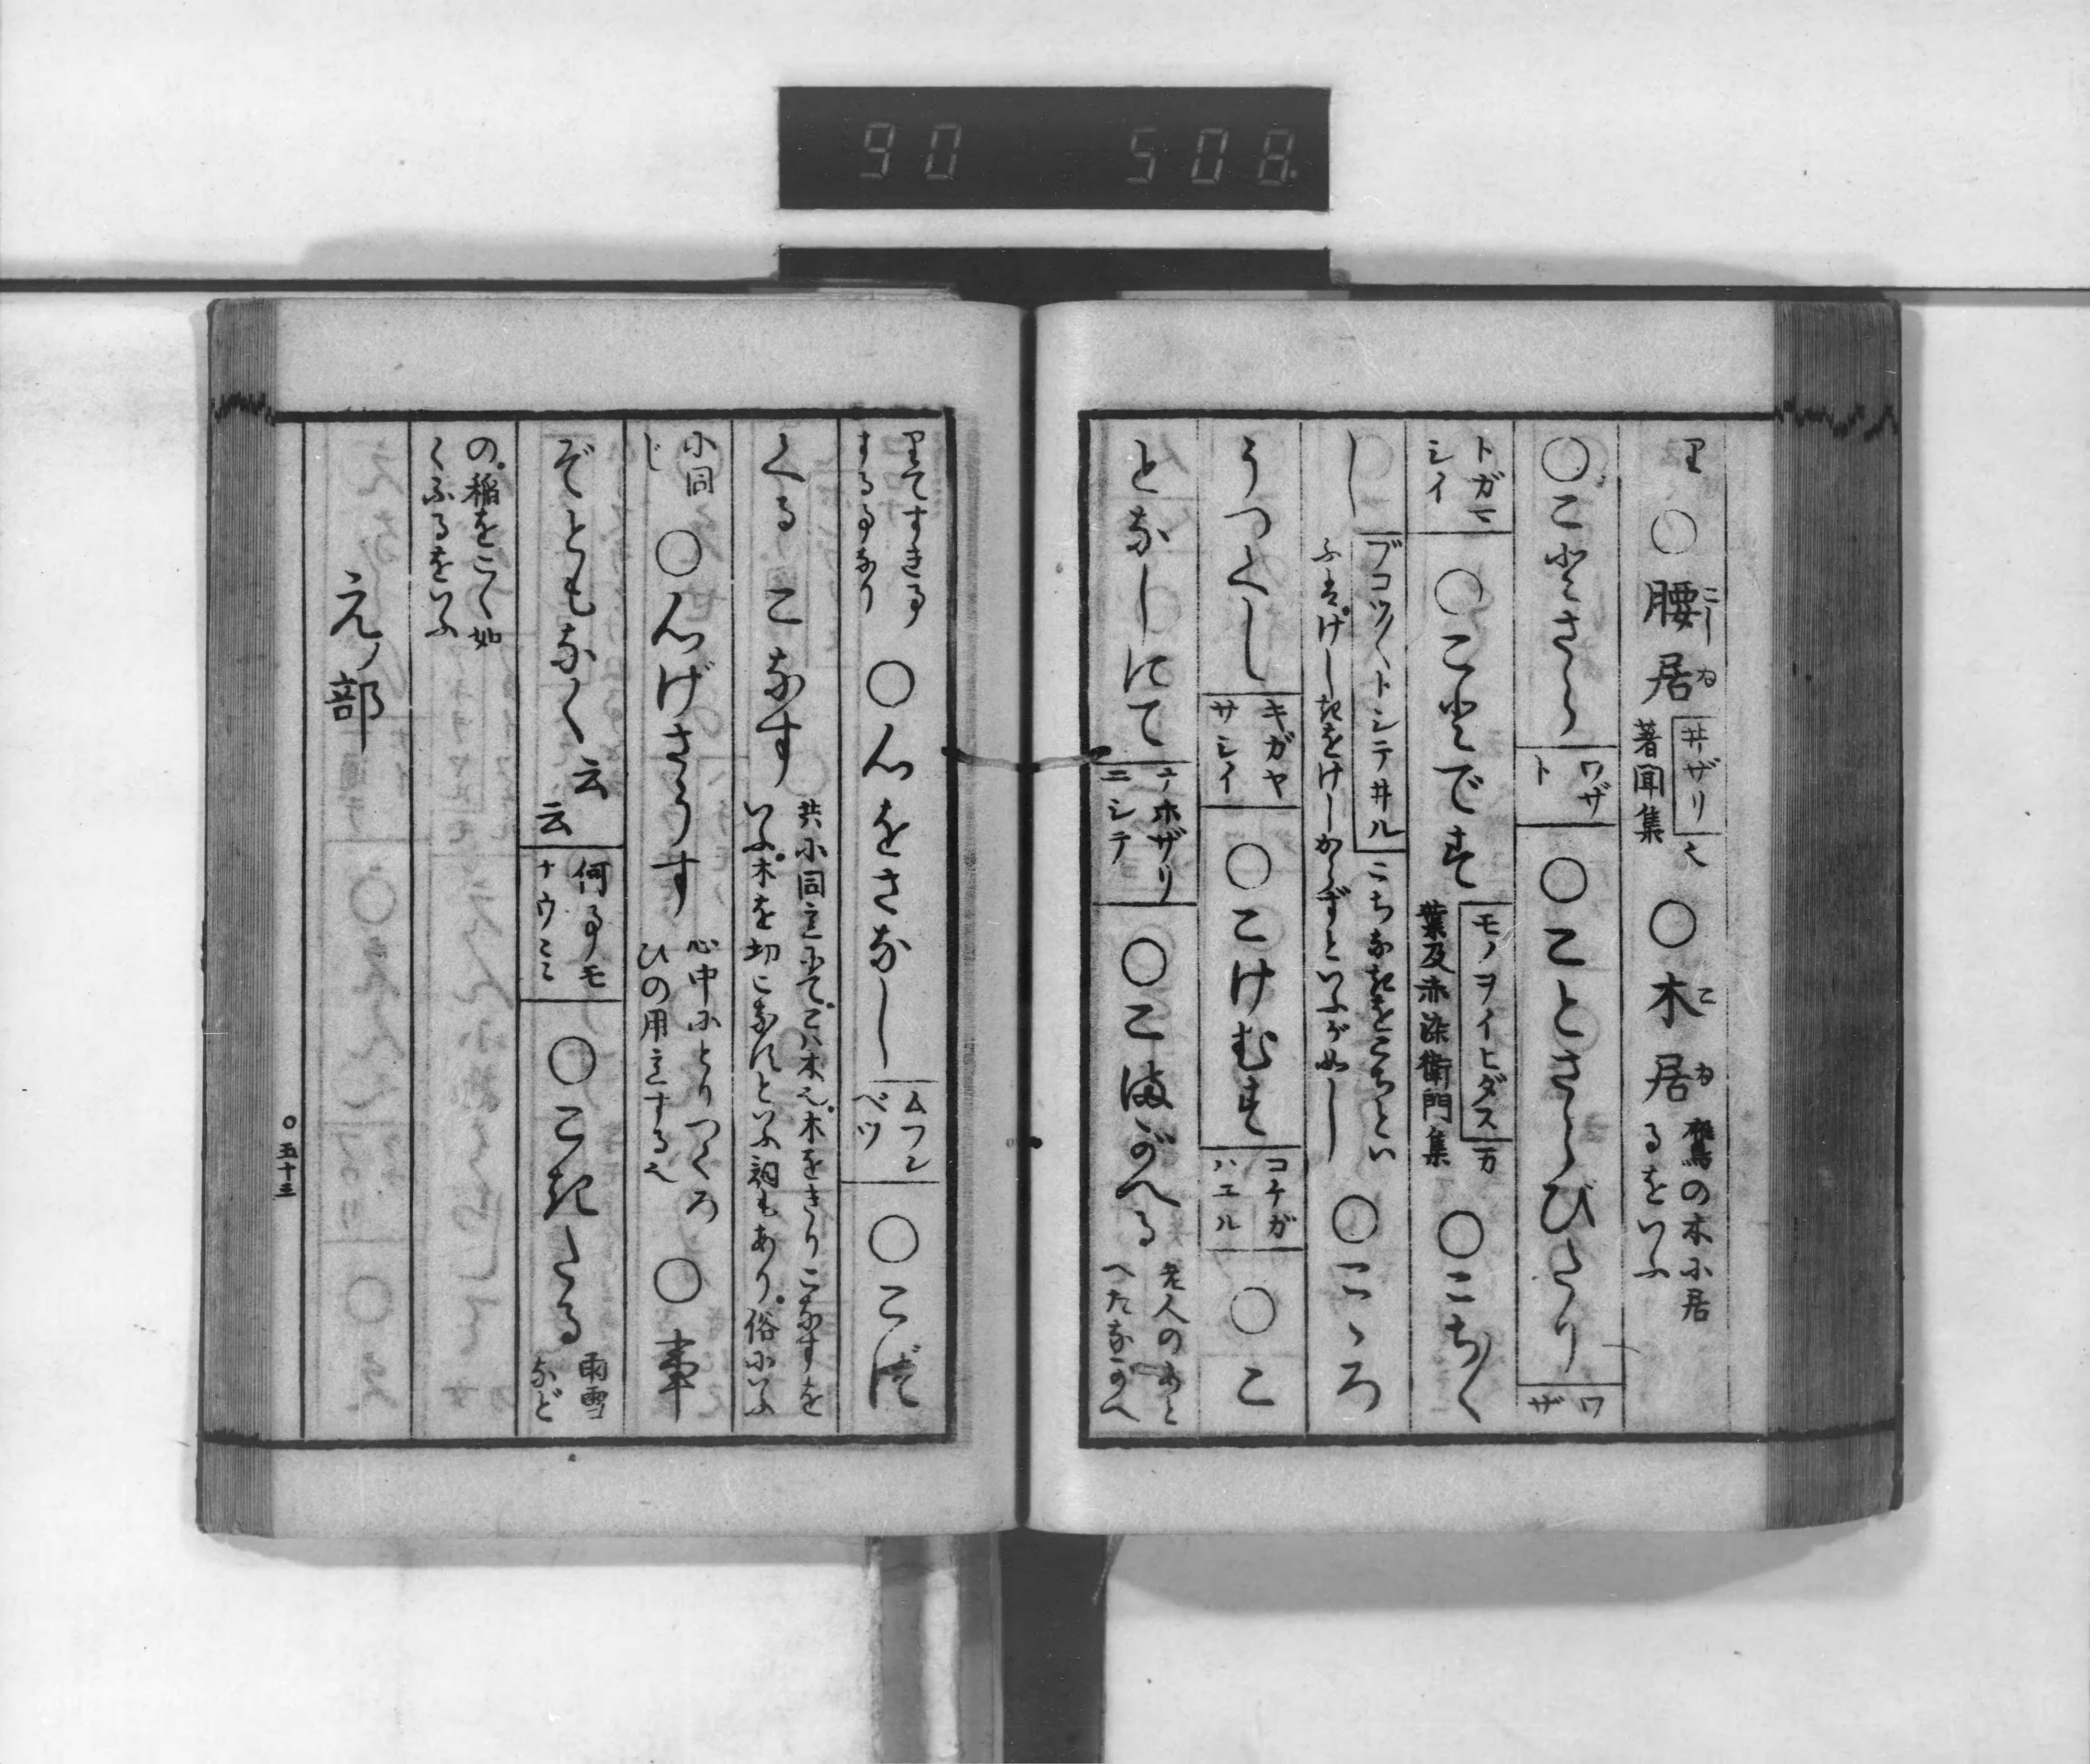 90 508
り ○腰居 こしゐ ヰザリ 也 著聞集 ○木居 こゐ 鷹の木に居るをいふ
○ことさら ワザト ○ことさらびたり ワザ
トガマシイ ○こといです モノヲイヒダス 万葉及赤染衛門集 ○こち〴〵
し ブコツ〳〵トシテヰル こちなきをこちといふは。けしきをけしからずといふが如し ○こゝろ
うつくし キガヤサシイ ○こけむす コケガハエル ○こ
となしにて ナホザリニシテ ○こまがへる 老人のあとへたちかへ
りてすきる事するなり ○心をさなし ムフンベツ ○こだ
くる こなす 共に同言にて。こハ木也。木をきりこなすをいふ。木を切こなすといふ詞もあり。俗にいふ
に同じ ○心げさうす 心中にとりつくろひの用意する也 ○事
ぞともなく 云云 何事モナウミミ ○こきたる 雨雪など
の。稲をこく如くふるをいふ
え ノ部
○五十三